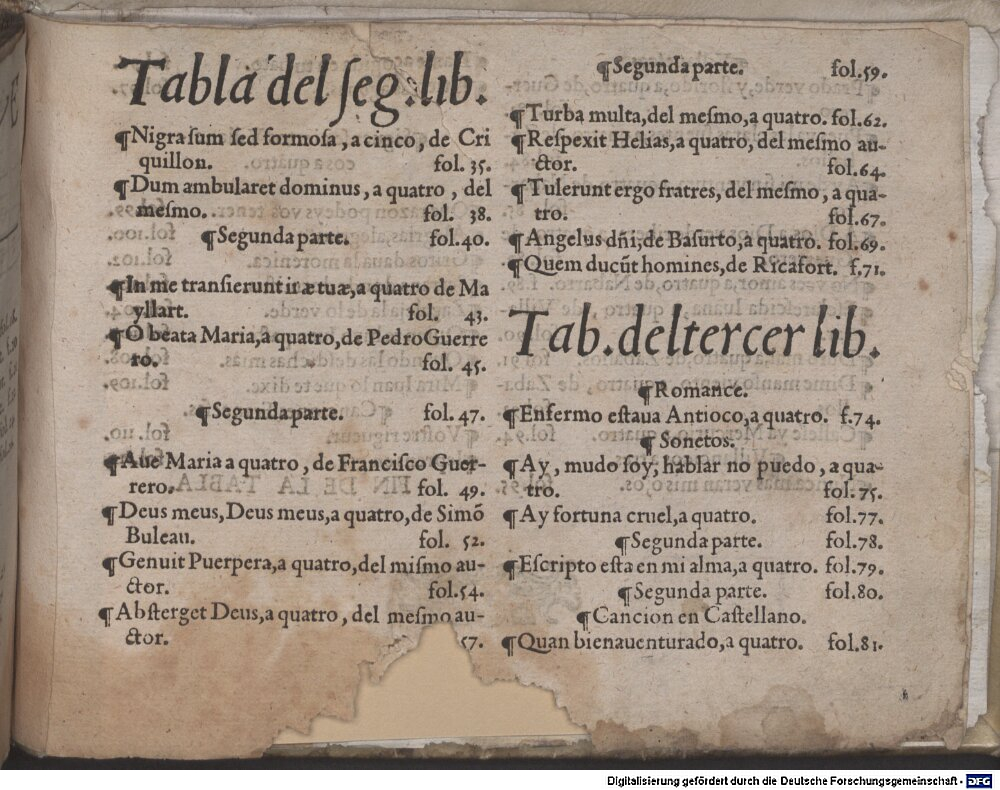 Tabla del ſeg. lib.
¶Nigra ſum ſed formoſa, a cinco, de Cri
quillon. fol. 35.
¶Dum ambularet dominus, a quatro, del
meſmo. fol. 38.
¶Segunda parte. fol. 40.
¶In me tranſierunt iræ tuæ, a quatro de Ma
yllart. fol. 43.
¶O beata Maria, a quatro, de Pedro Guerre
ro. fol. 45.
¶Segunda parte. fol. 47.
¶Aue Maria a quatro, de Franciſco Guer-
rero. fol. 49.
¶Deus meus, Deus meus, a quatro, de Simõ
Buleau. fol. 52.
¶Genuit Puerpera, a quatro, del miſmo au-
ctor. fol. 54.
¶Abſterget Deus, a quatro, del meſmo au-
ctor. 57.
¶Segunda parte. fol. 59.
¶Turba multa, del meſmo, a quatro. fol. 62.
¶Reſpexit Helias, a quatro, del meſmo au-
ctor. fol. 64.
¶Tulerunt ergo fratres, del meſmo, a qua-
tro. fol. 67.
¶Angelus dñi, de Baſurto, a quatro. fol. 69.
¶Quem ducũt homines, de Ricafort. f. 71.
Tab. del tercer lib.
¶Romance.
¶Enfermo eſtaua Antioco, a quatro. f. 74.
¶Sonetos.
¶Ay, mudo ſoy, hablar no puedo, a qua-
tro. fol. 75.
¶Ay fortuna cruel, a quatro. fol. 77.
¶Segunda parte. fol. 78.
¶Eſcripto eſta en mi alma, a quatro. fol. 79.
¶Segunda parte. fol. 80.
¶Cancion en Caſtellano.
¶Quan bienauenturado, a quatro. fol. 81.
Digitalisierung gefördert durch die Deutsche Forschungsgemeinschaft - DFG